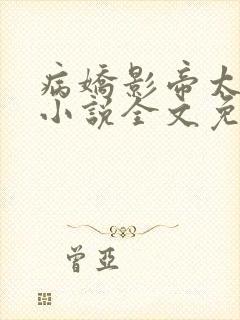 病嬌影帝太
小說全文免
曾亞